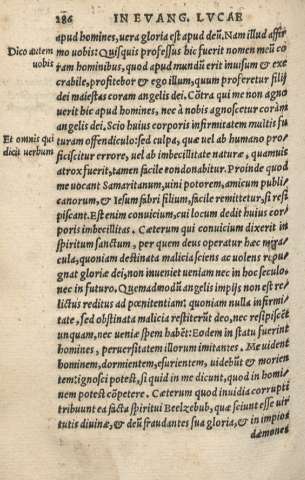 286 IN EVANG. LVCAE
apud homines, uera gloria est apud deũ. Nam illud affir
Dico autem
uobis
mo uobis: Quisquis professus hic fuerit nomen meũ co
ram hominibus, quod apud mundũ erit inuisum & exe
crabile, profitebor & ego illum, quum proferetur filij
dei maiestas coram angelis dei. Cõtra qui me non agno
uerit hic apud homines, nec à nobis agnoscetur corãm
angelis dei. Scio huius corporis infirmitatem multis fu
Et omnis qui
dicit verbum
turam offendiculo: sed culpa, quæ uel ab humano pro-
ficiscitur errore, uel ab imbecillitate naturæ, quamuis
atrox fuerit, tamen facile condonabitur. Proinde quod
me uocant Samaritanum, uini potorem, amicum publi
canorum, & Iesum fabri filium, facile remittetur, si resi
piscant. Est enim conuicium, cui locum dedit huius cor-
poris imbecillitas. Cæterum qui conuicium dixerit in
spiritum sanctum, per quem deus operatur hæc mira
cula, quoniam destinata malicia sciens ac uolens repu-
gnat gloriæ dei, non inueniet ueniam nec in hoc seculo,
nec in futuro. Quemadmodũ angelis impijs non est re-
lictus reditus ad pœnitentiam: quoniam nulla infirmi-
tate, sed obstinata malicia restiterũt deo, nec resipiscẽt
unquam, nec ueniæ spem habẽt: Eodem in statu fuerint
homines, peruersitatem illorum imitantes. Me uident
hominem, dormientem, esurientem, uidebũt & morien
tem: ignosci potest, si quid in me dicunt, quod in homi-
nem potest cõpetere. Cæterum quod inuidia corrupti
tribuunt ea facta spiritui Beelzebub, quæ sciunt esse uir
tutis diuinæ, & deũ fraudantes sua gloria, & in impios
dæmones